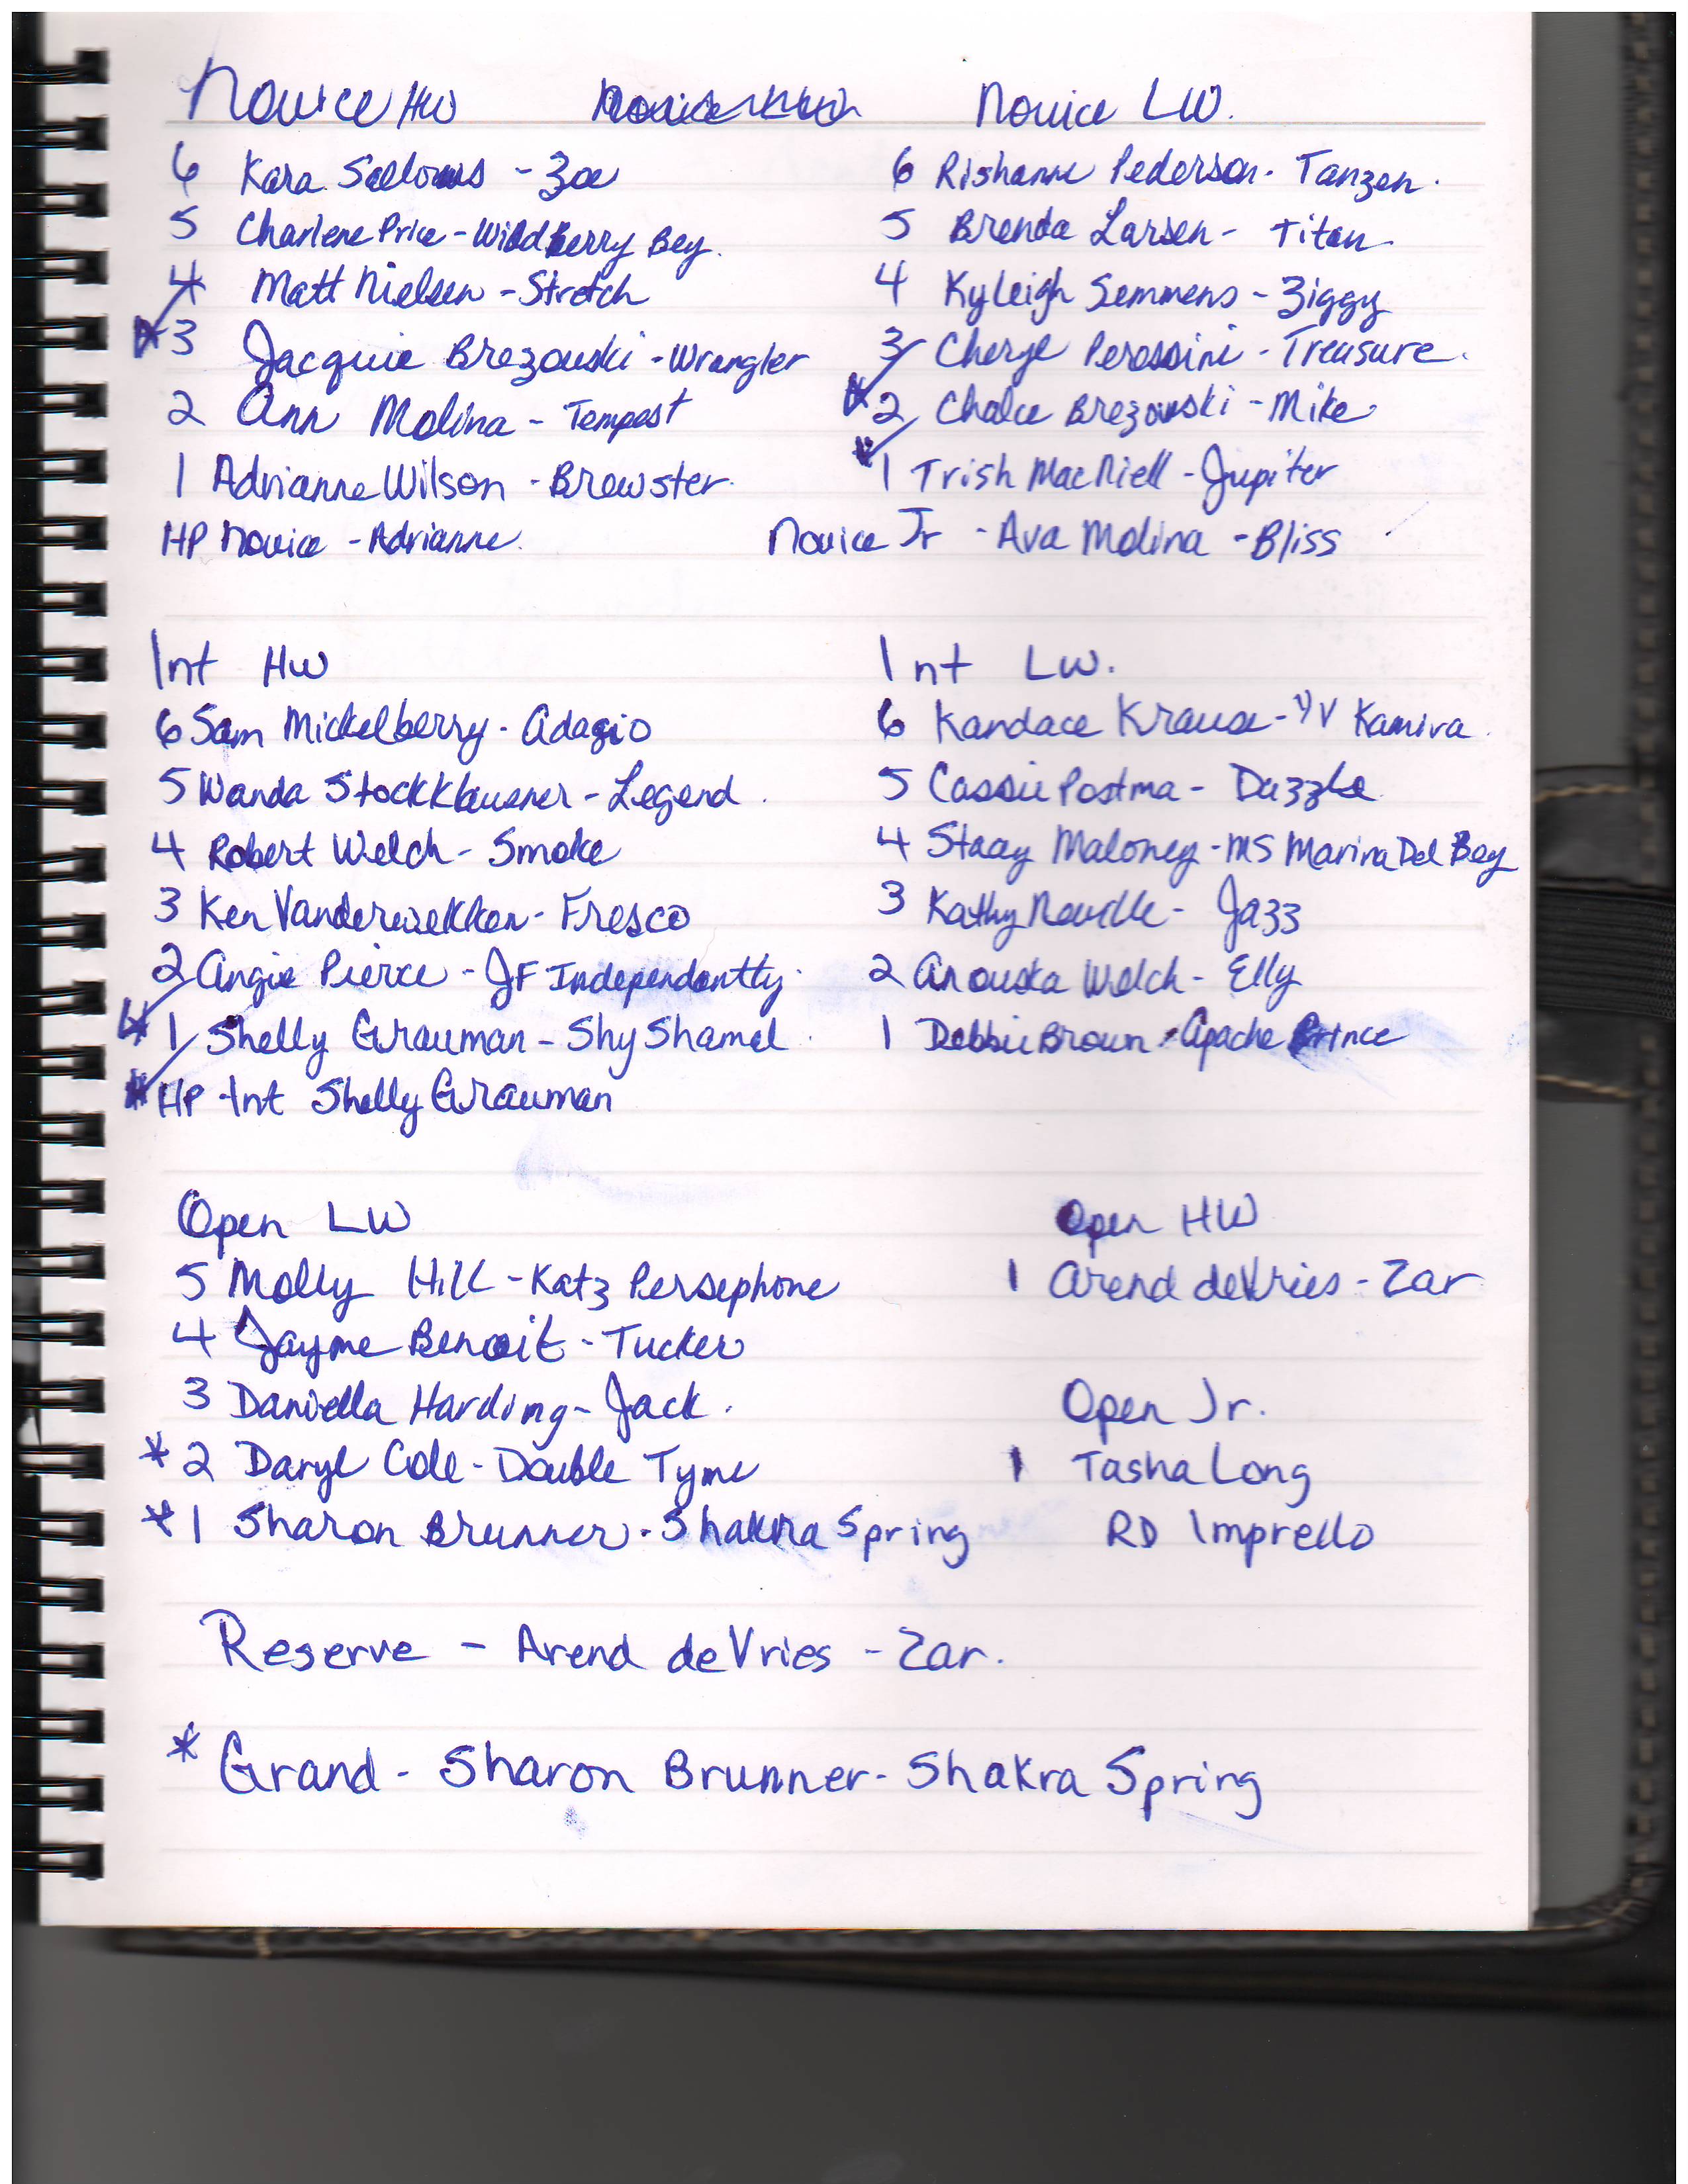 Novice HW
6 Kara Sallows - Zoe
5 Charlene Price - WildBerry Bey.
4 Matt Nielsen - Stretch
* 3 Jacquie Brezouski - Wrangler
2 Ann Molina - Tempest
1 Adrianne Wilson - Brewster.
HP Novice - Adrianne.
Novice LW.
6 Rishanne Pederson - Tanzen.
5 Brenda Larsen - Titan.
4 Kyleigh Semmens - Ziggy
3 Cheryl - Treasure.
* 2 Brezouski - Mike
* 1 Trish MacNiell - Jupiter
Novice Jr - Ava Molina - Bliss
Int HW
6 Sam Mickelberry - Adagio
5 Wanda StockKlausner - Legend.
4 Robert Welch - Smoke
3 Ken Vanderwekken - Fresco
2 Angie Pierce - JF Independantly.
* 1 Shelly Grauman - Shy Shamal.
* HP Int Shelly Grauman
Int LW.
6 Kandace Krause - YV Kamira.
5 Cassie Postma - Dazzle
4 Stacy Maloney - MS Marina Del Bey
3 Kathy Neudle - Jazz
2 Anouska Welch - Elly
1 Debbie Brown - Apache Prince
Open LW
5 Molly Hill - Katz Persephone
4 Jayme Benoit - Tucker
3 Daniella Harding - Jack.
* 2 Daryl Cole - Double Tyme
* 1 Sharon Brunner - Shakra Spring
Open HW
1 Arend deVries - Zar
Open Jr.
1 Tasha Long
RD Imprello
Reserve - Arend deVries - Zar.
* Grand - Sharon Brunner - Shakra Spring